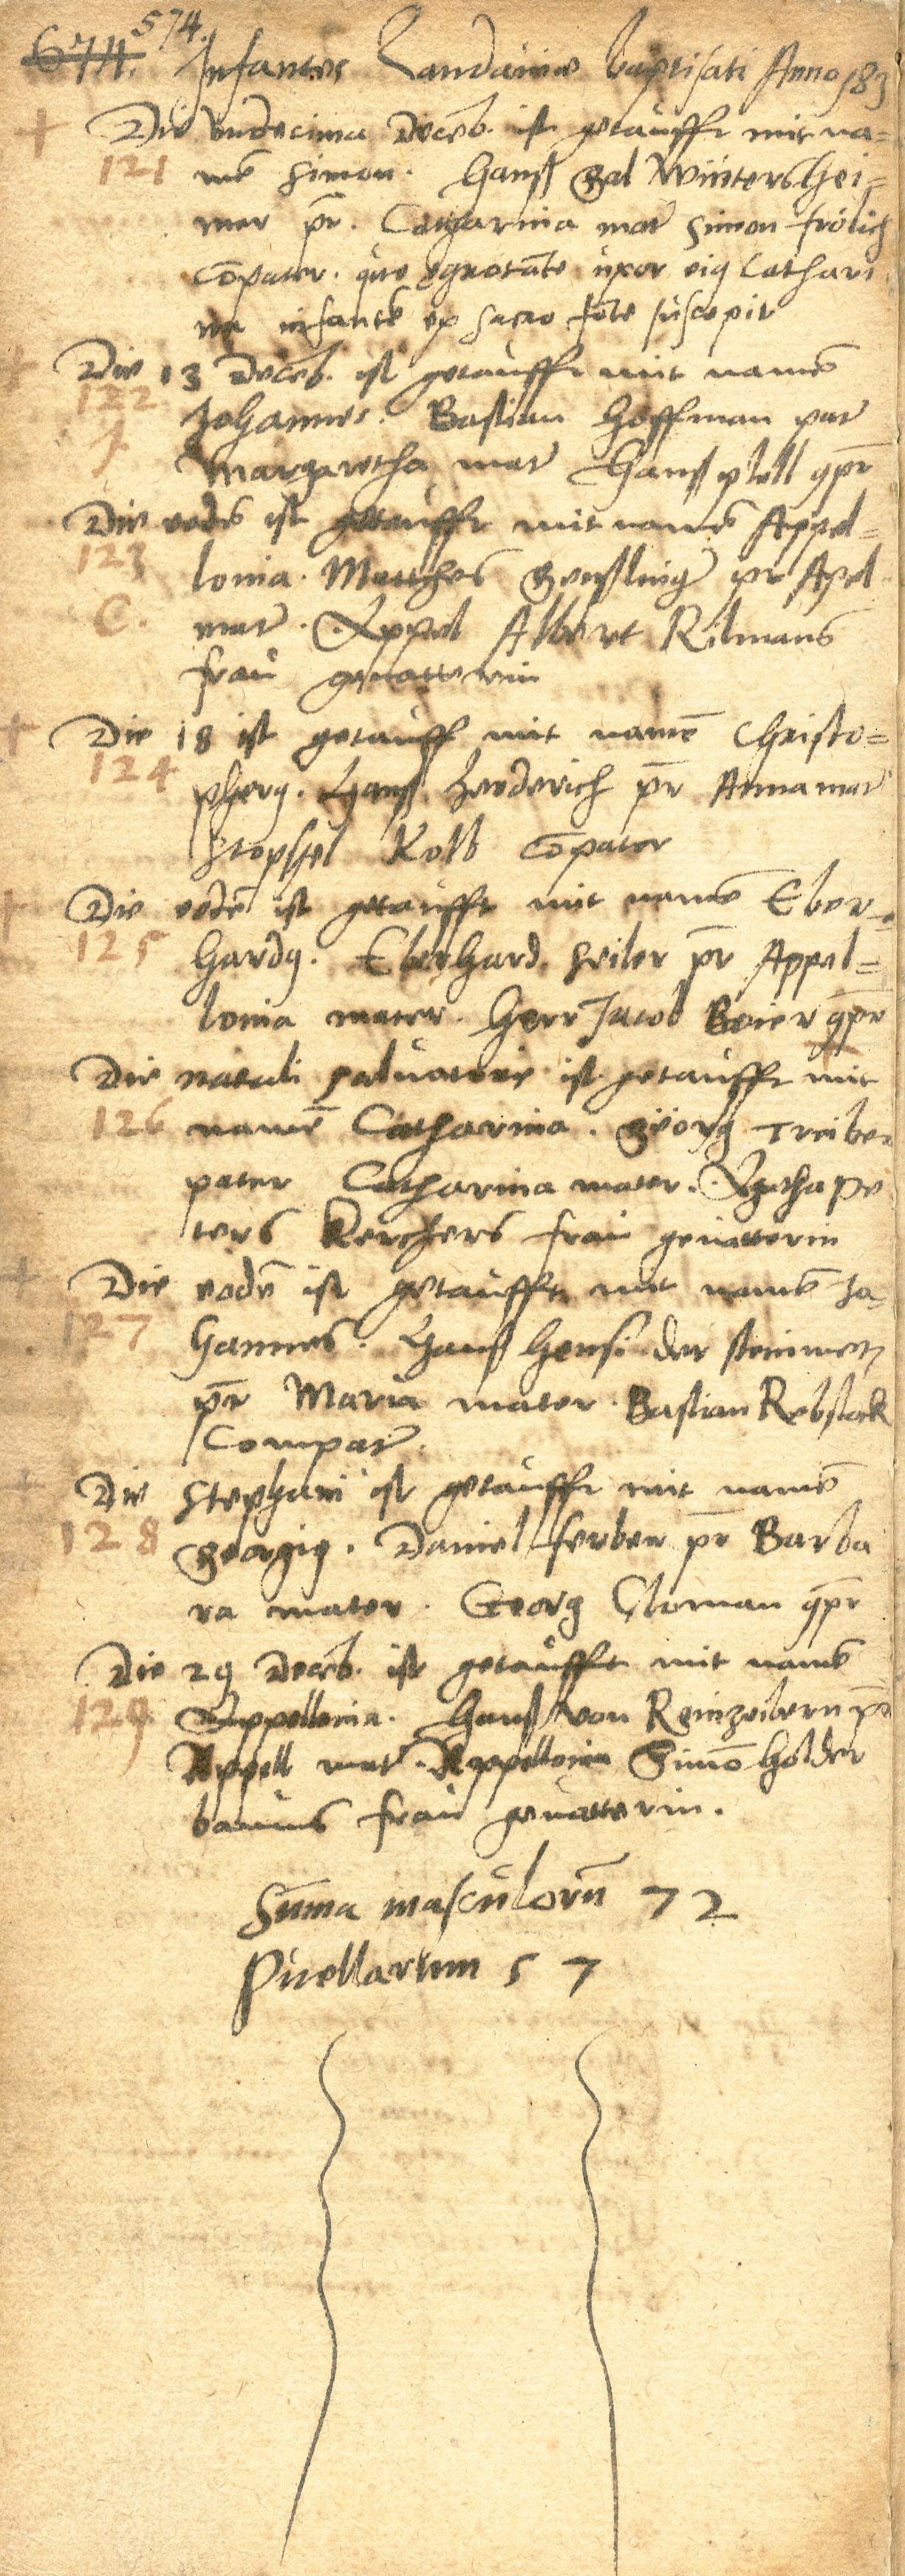 674. 574.
Infantes Landauiae baptisati Anno 83
Die vndecima Deceb. ist getaufft mit na=
121 mē Simon. Hanß Gal Wintershei=
mer pr̄. Catharina mat̄ Simon frölich
Cōpater. quo egrotāte uxor eiꝰ Cathari
na infantē ex sacro fōte suscepit
Die 13 Deceb. ist getaufft mit namē
122 Johannes. Bastian Hoffman pat̄
Margaretha mat̄ Hanß plell gpr̄
Die eodē ist getaufft mit namē Appol=
123 lonia. Mattheß Genßling pr Apel
C. mat̄. Appel Albert Rilmans
frau geuatterin
Die 18 ist getaufft mit namē Christo=
124 pherꝰ. Hanß Herderich pr̄ Anna mat̄
Stophel Kolb Cōpater
Die eodē ist getaufft mit namē Eber=
125 hardꝰ. Eberhard Seiler pr̄ Appol=
lonia mater. Herr Jacob Beier gpr̄
Die natali saluatoris ist getaufft mit
126 namē Catharina. Geörg Treiber
pater Catharina mater. Agtha Pe
ters Kerchers frau geuatterin
Die eodē ist getaufft mit namē Jo=
127 hannes. Hanß Hensi der steinmetz
pr̄ Maria mater. Bastian Rebstock
Compat̄.
Die Stephani ist getaufft mit namē
128 Georgiꝰ. Daniel ferber pr̄ Barba
ra mater. Georg Cloman gpr̄
Die 29 Deceb. ist getaufft mit namē
129 Appollonia. Hanß von Reinzabern pr̄
Appell mat̄. Appollonia Simō Holder
baums frau geuatterin.
Sūma masculorū 72
Puellarum 57